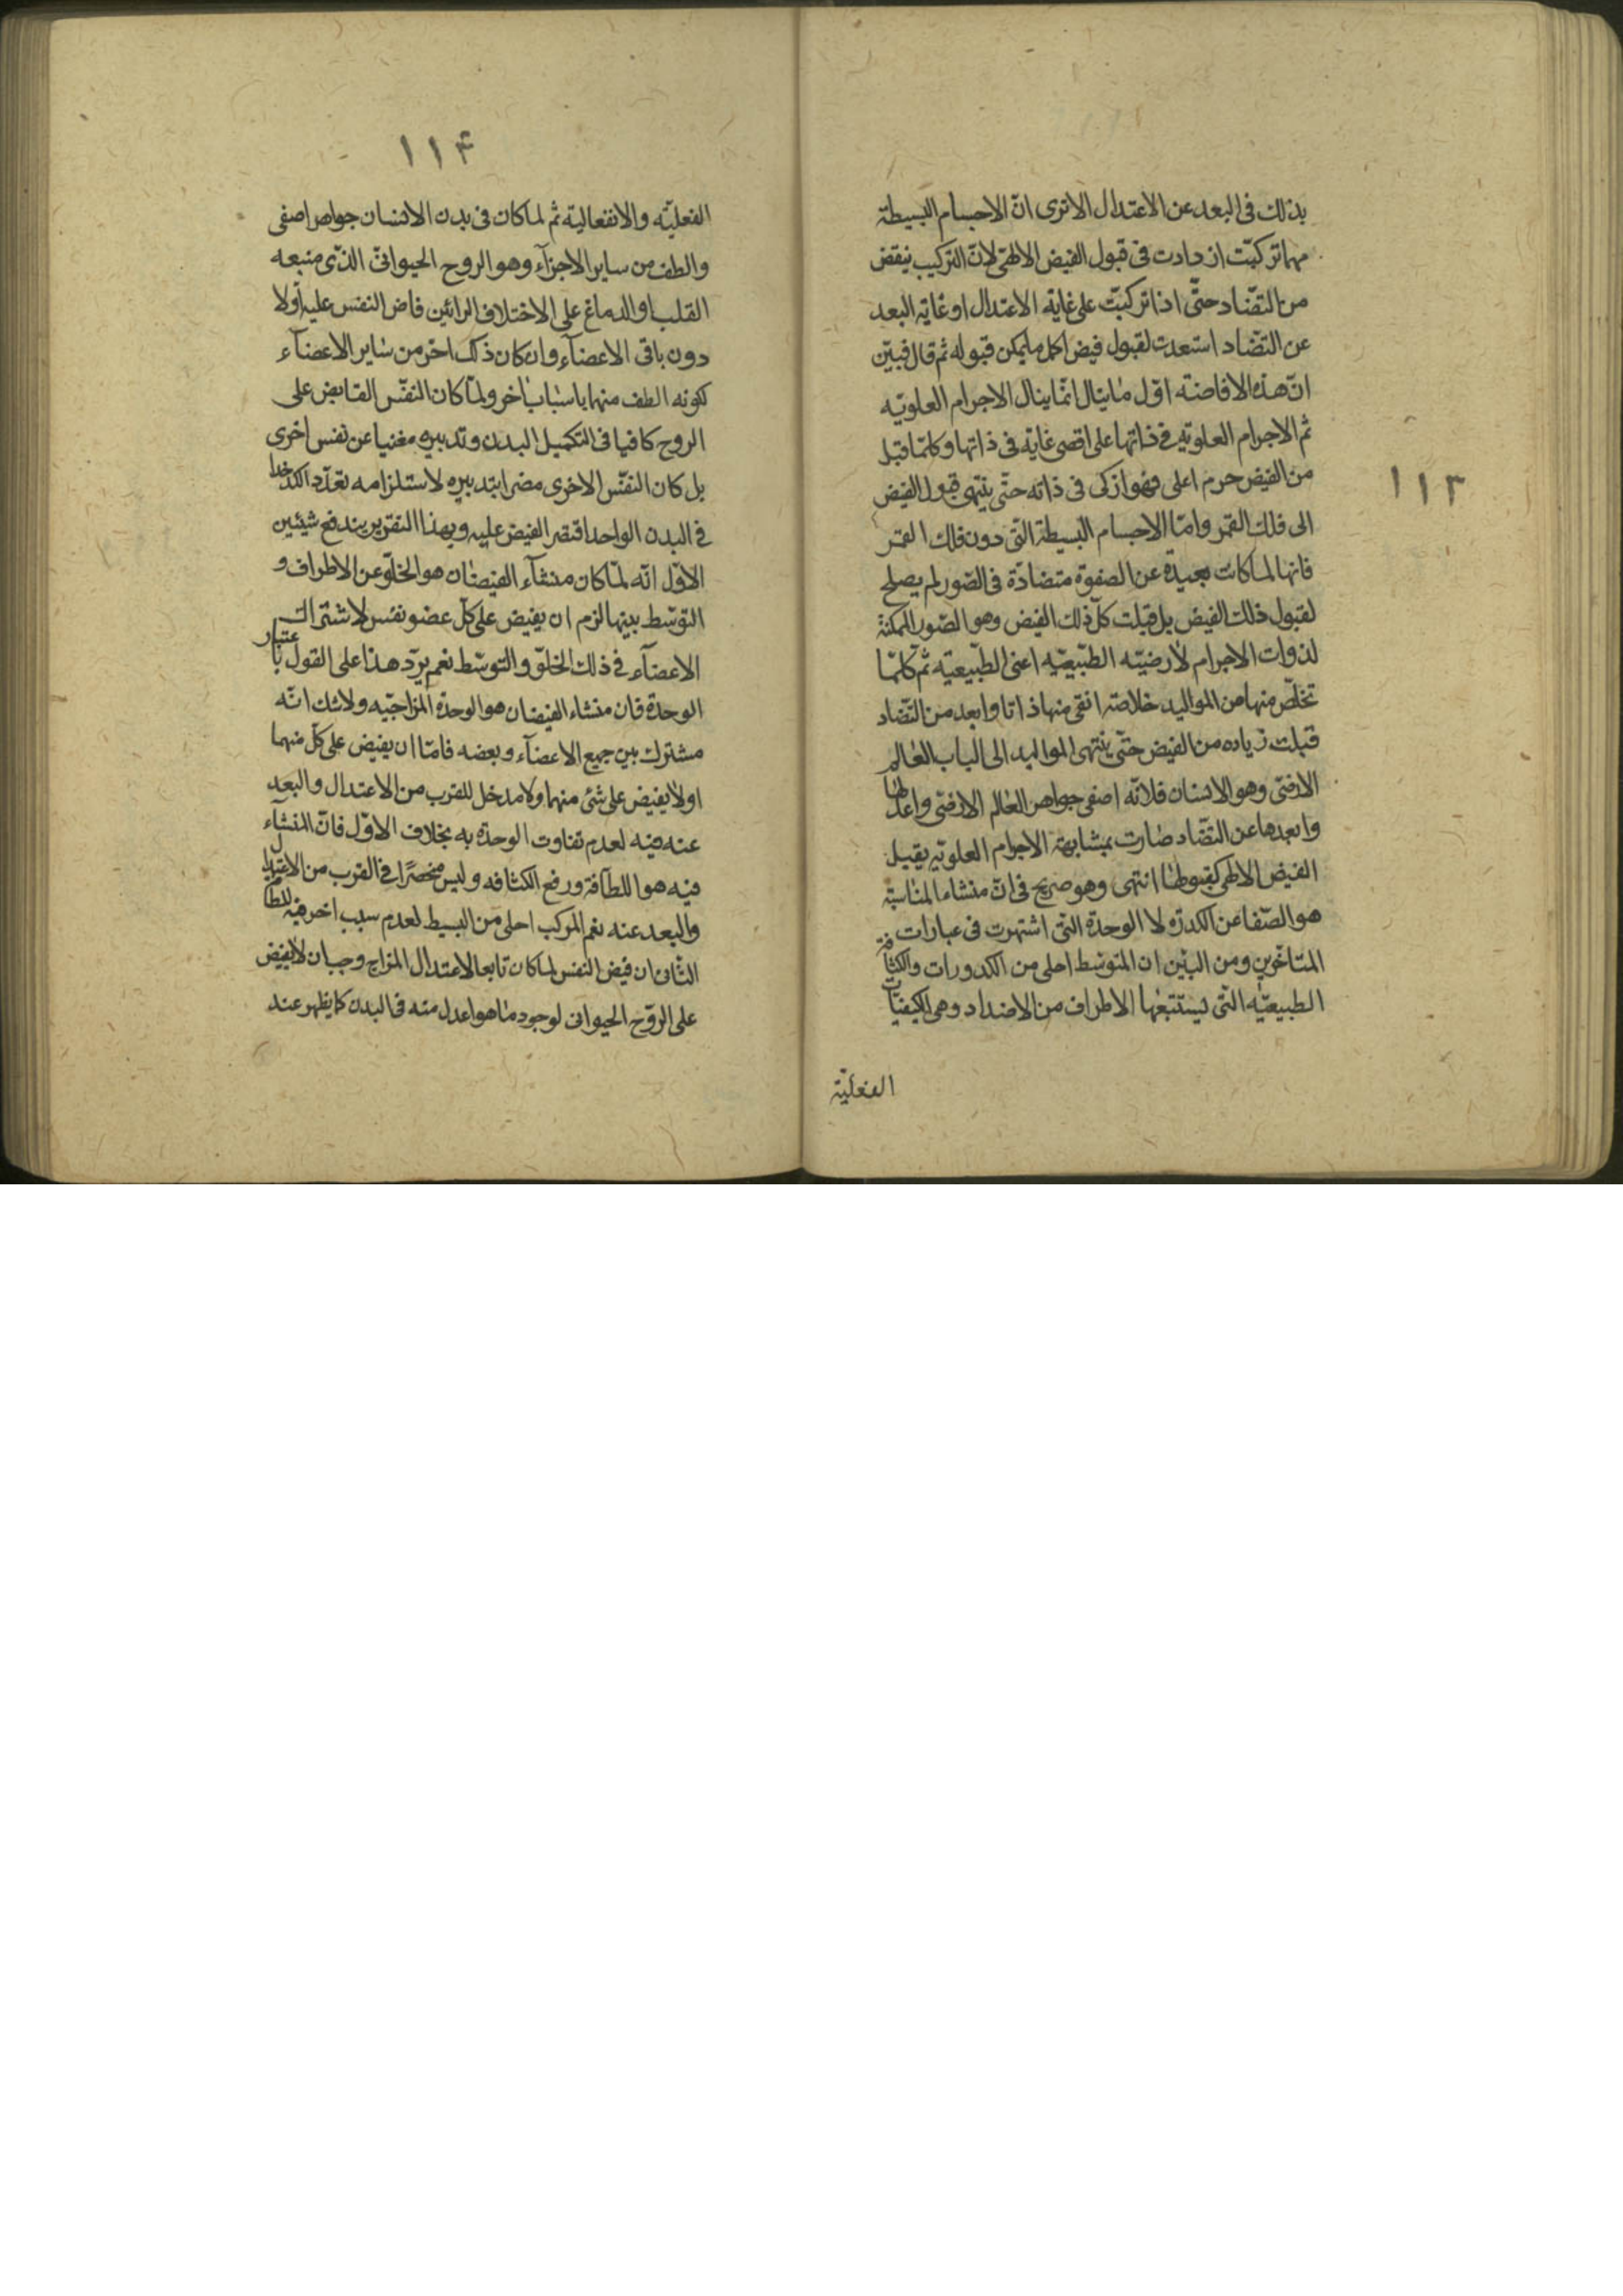 ١١٣
بذلك فى البعد عن الاعتدال الا ترى انّ الاجسام البسيطة
مهما تركبّت ازدادت فى قبول الفيض الالهىّ لانّ التركيب ينقض
من التضّاد حتّى اذا تركبّت على غاية الاعتدال او غاية البعد
عن التضّاد استعدت لقبول فيض اكمل ما يمكن قبوله ثم قال فبيّن
انّ هذه الافاضته اوّل ما ينال انمّا ينال الاجرام العلويّه
ثم الاجرام العلويّه فى ذاتها على اقصى غاية فى ذاتها وكلمّا قبل
من الفيض جرم اعلى فهو ازكى فى ذاته حتّى ينتهى قبول الفيض
الى فلك القمر وامّا الاجسام البسيطة التّى دون فلك القمر
فانها لما كانت بعيدة عن الصفوة متضادّة فى الصّور لم يصلح
لقبول ذلك الفيض بل قبلت كلّ ذلك الفيض وهو الصّور الممكنة
لذوات الاجرام لأرضيّه الطبّيعيّه اعنى الطبّيعيّه ثم كلمّا
تخلصّ منها من المواليد خلاصة انقى منها ذاتا وابعد من التضّاد
قبلت زياده من الفيض حتّى ينتهى المواليد الى الباب العالم
الارضىّ وهو الانسان فلانّه اصفى جواهر العالم الارضىّ واعدلها
وابعدها عن التضّاد صارت بمشابهة الاجرام العلويّه يقبل
الفيض الالهى كقبولها انتهى وهو صريح فى انّ منشاء المناسبة
هو الصّفا عن الكدرة لا الوحدة التّى اشتهرت فى عبارات
المتاخّرين ومن البيّن ان المتوسّط احلى من الكدورات والكثافة
الطبيعيّه التّى يستتبعها الاطراف من الاضداد وهى الكيفيّات
الفعليّة
١١۴
الفعليّه والانفعالية ثم لما كان فى بدن الانسان جواهر اصفى
والطف من ساير الاجزآء وهو الروح الحيوانىّ الذّى منبعه
القلب او الدماغ على الاختلاف الرائين فاض النفس عليه اولا
دون باقى الاعضآء وان كان ذلك اخر من ساير الاعضآء
لكونه الطف منها باسباب اخر ولمّا كان النفّس الفايض على
الروح كافيا فى التكميل البدن وتدبيره مغنيا عن نفس اخرى
بل كان النفّس الاخرى مضرا بتدبيره لاستلزامه تعدّد الكدخدا
فى البدن الواحد اقتصر الفيض عليه وبهذا التقرير يندفع شيئين
الاوّل انّه لمّا كان منشآء الفيضان هو الخلّو عن الاطراف و
التوسّط بينها لزم ان يفيض على كلّ عضو نفس لاشتراك
الاعضآء فى ذلك الخلّو والتوسّط نعم يرّد هذا على القول باعتبار
الوحدة فان منشاء الفيضان هو الوحدة المزاجيّه ولا شك انّه
مشترك بين جميع الاعضآء وبعضه فامّا ان يفيض على كلّ منهما
او لا يفيض على شئ منهما ولا مدخل للقرب من الاعتدال والبعد
عنه فيه لعدم تفاوت الوحدة به بخلاف الاوّل فانّ المنشآء
فيه هو اللطافة ورفع الكثافه وليس منحصرًا فى القرب من الاعتدال
والبعد عنه نعم المركب احلى من البسيط لعدم سبب اخر فيه للطا
الثانى ان فيض النفس لما كان تابعا لاعتدال المزاج وجب ان لا يفيض
على الرّوح الحيوانى لوجود ما هو اعدل منه فى البدن كما يظهر عند